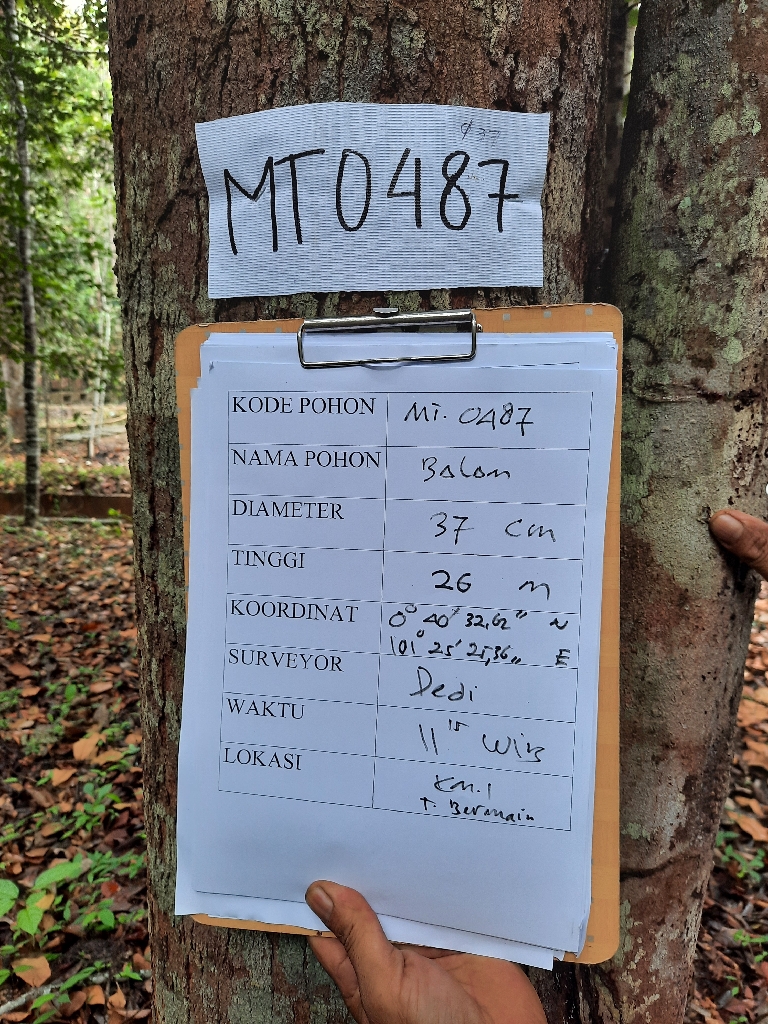 φ 37
MT0487
KODE POHON MT. 0487
NAMA POHON Balam
DIAMETER 37 cm
TINGGI 26 m
KOORDINAT 0° 40' 32,62" N
101° 25' 25,36" E
SURVEYOR Dedi
WAKTU 11 15 WIB
LOKASI KM.1
T. Bermain